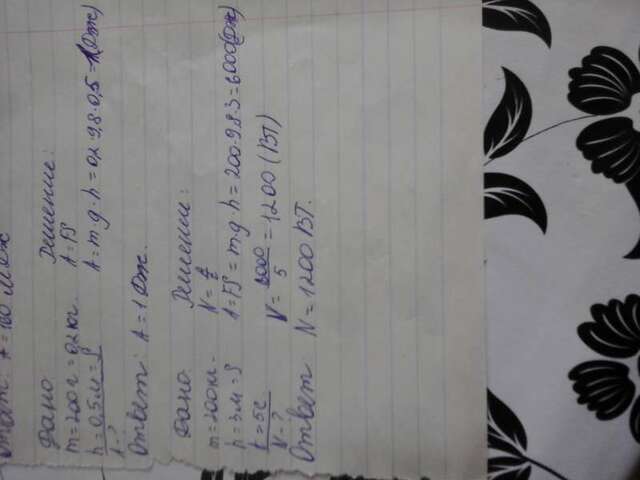 Ответ: A = 100 МДж
Дано
Решение:
m = 200 г. = 0,2 кг.
A = FS
h = 0,5 м = S
A = m·g·h = 0,2·9,8·0,5 = 1(Дж)
A - ?
Ответ: A = 1 Дж.
Дано
Решение:
m = 200 кг.
N = A/t
h = 3 м = S
A = FS = m·g·h = 200·9,8·3 = 6000(Дж)
t = 5 с
N = 6000/5 = 1200 (Вт)
N - ?
Ответ: N = 1200 Вт.